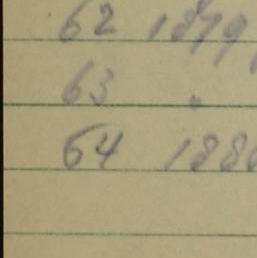 62 1879
63 .
64 188